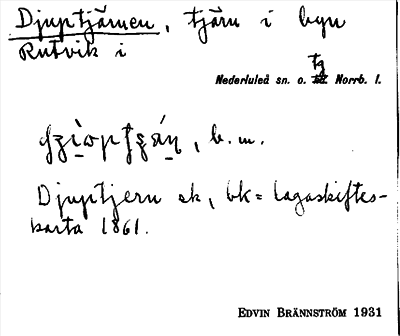 Djuptjärnen, tjärn i byn
Rutvik i
Nederluleå sn. o. tg Norrb. l.
b. m.
Djuptjern sk, bk = lagaskiftes-
karta 1861.
EDVIN BRÄNNSTRÖM 1931